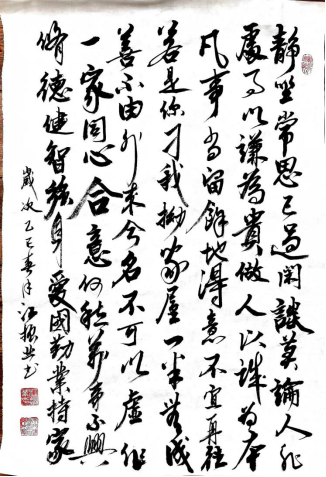 静坐常思己过闲谈莫论人非
处事以谦为贵做人以诚为本
凡事当留余地得意不宜再往
若是你刁我拗家屋一半无成
善不由外来兮名不可以虚作
一家同心合意何愁万事不兴
修德健智强身爱国勤业持家
岁次乙巳春月江振 书